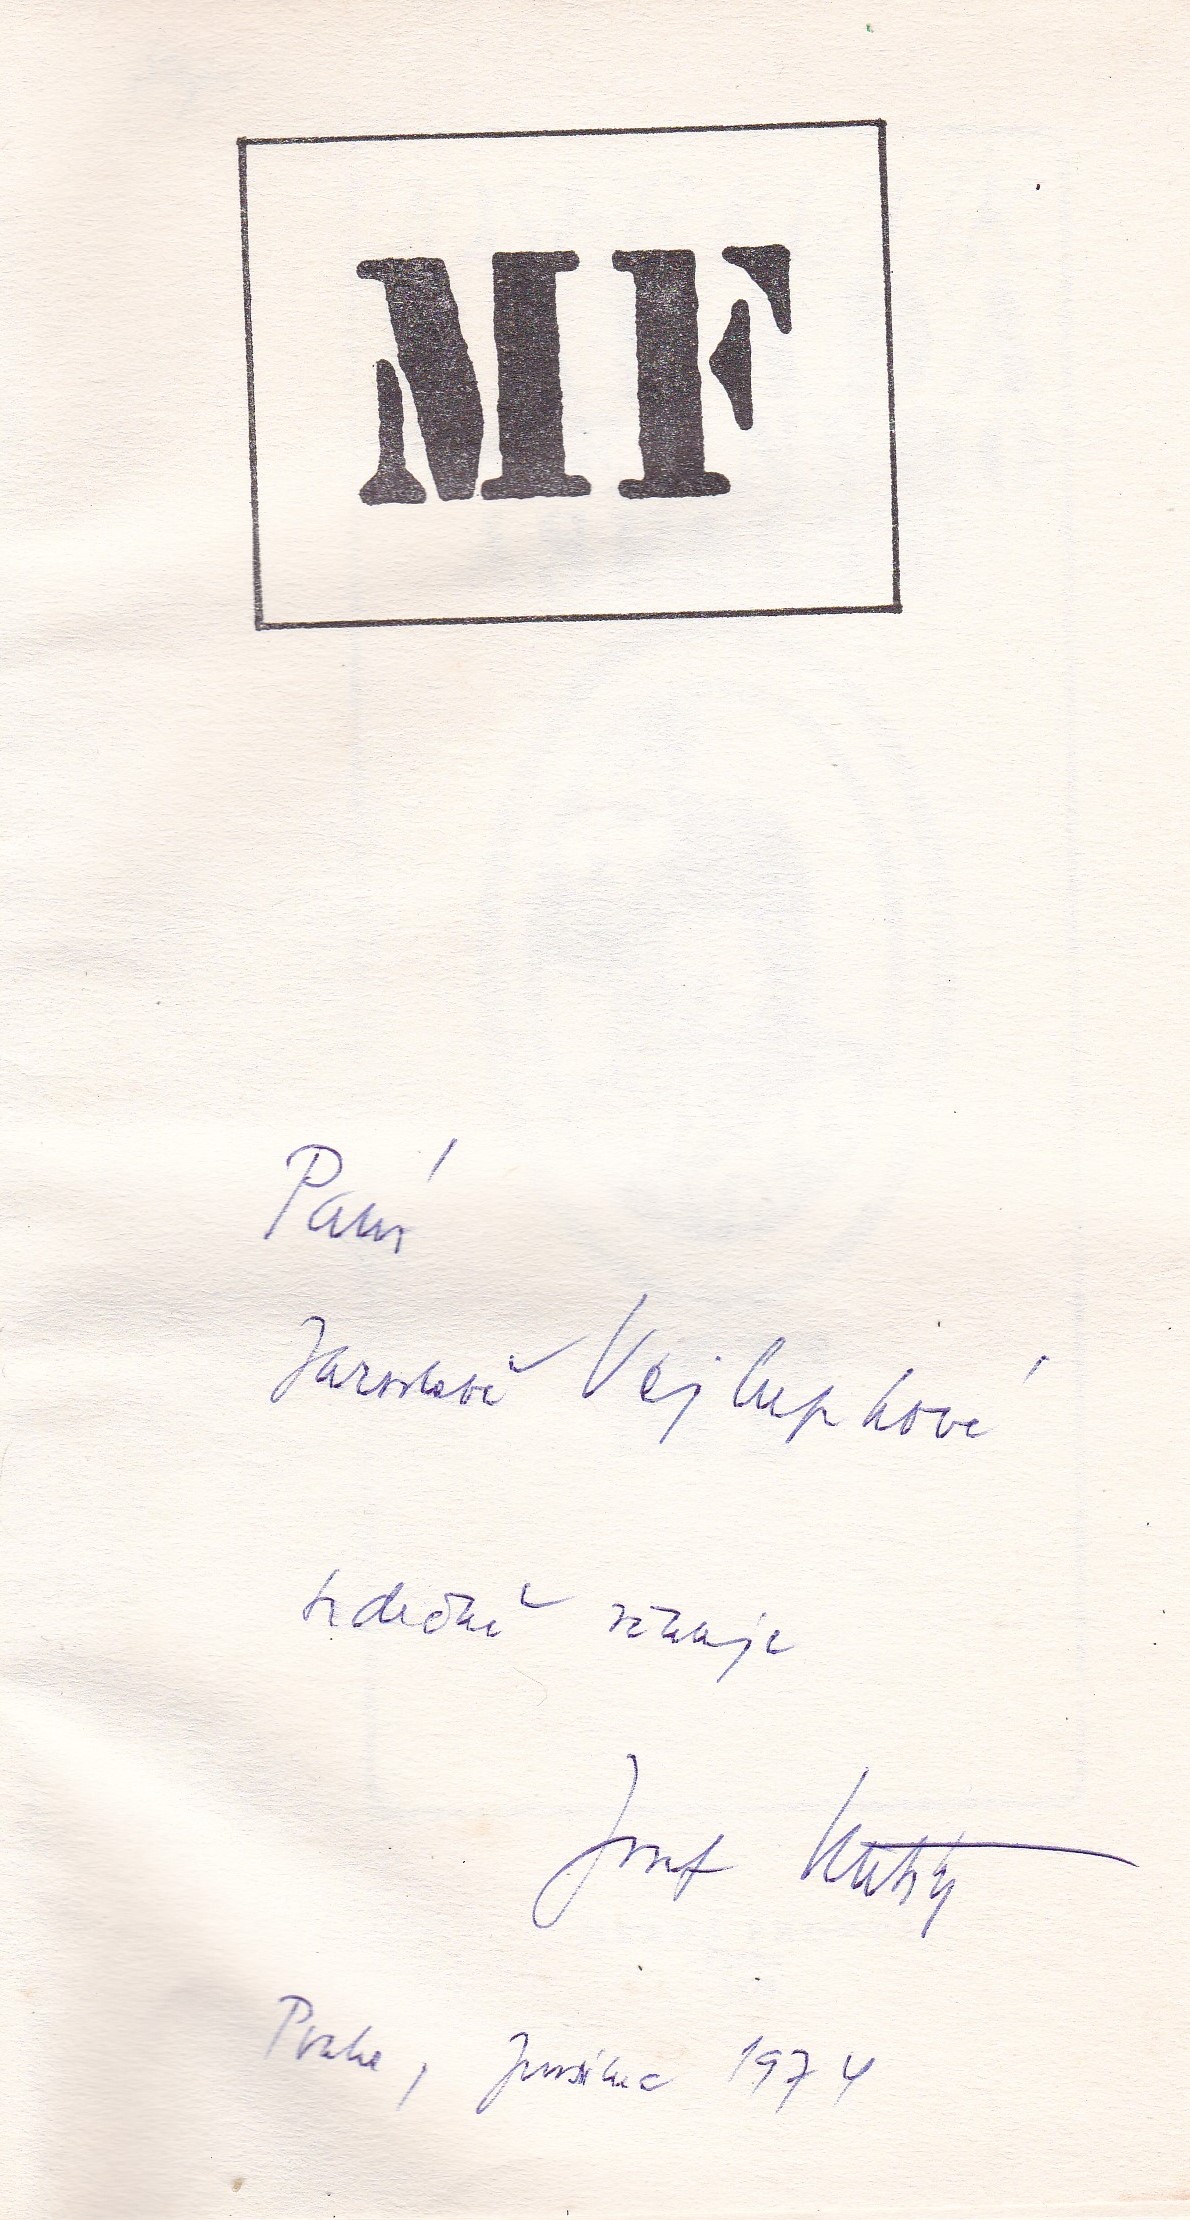 MF
Paní
Jaroslavě Vejlupkové
srdečně věnuje
Josef
Praha, prosinec 1974